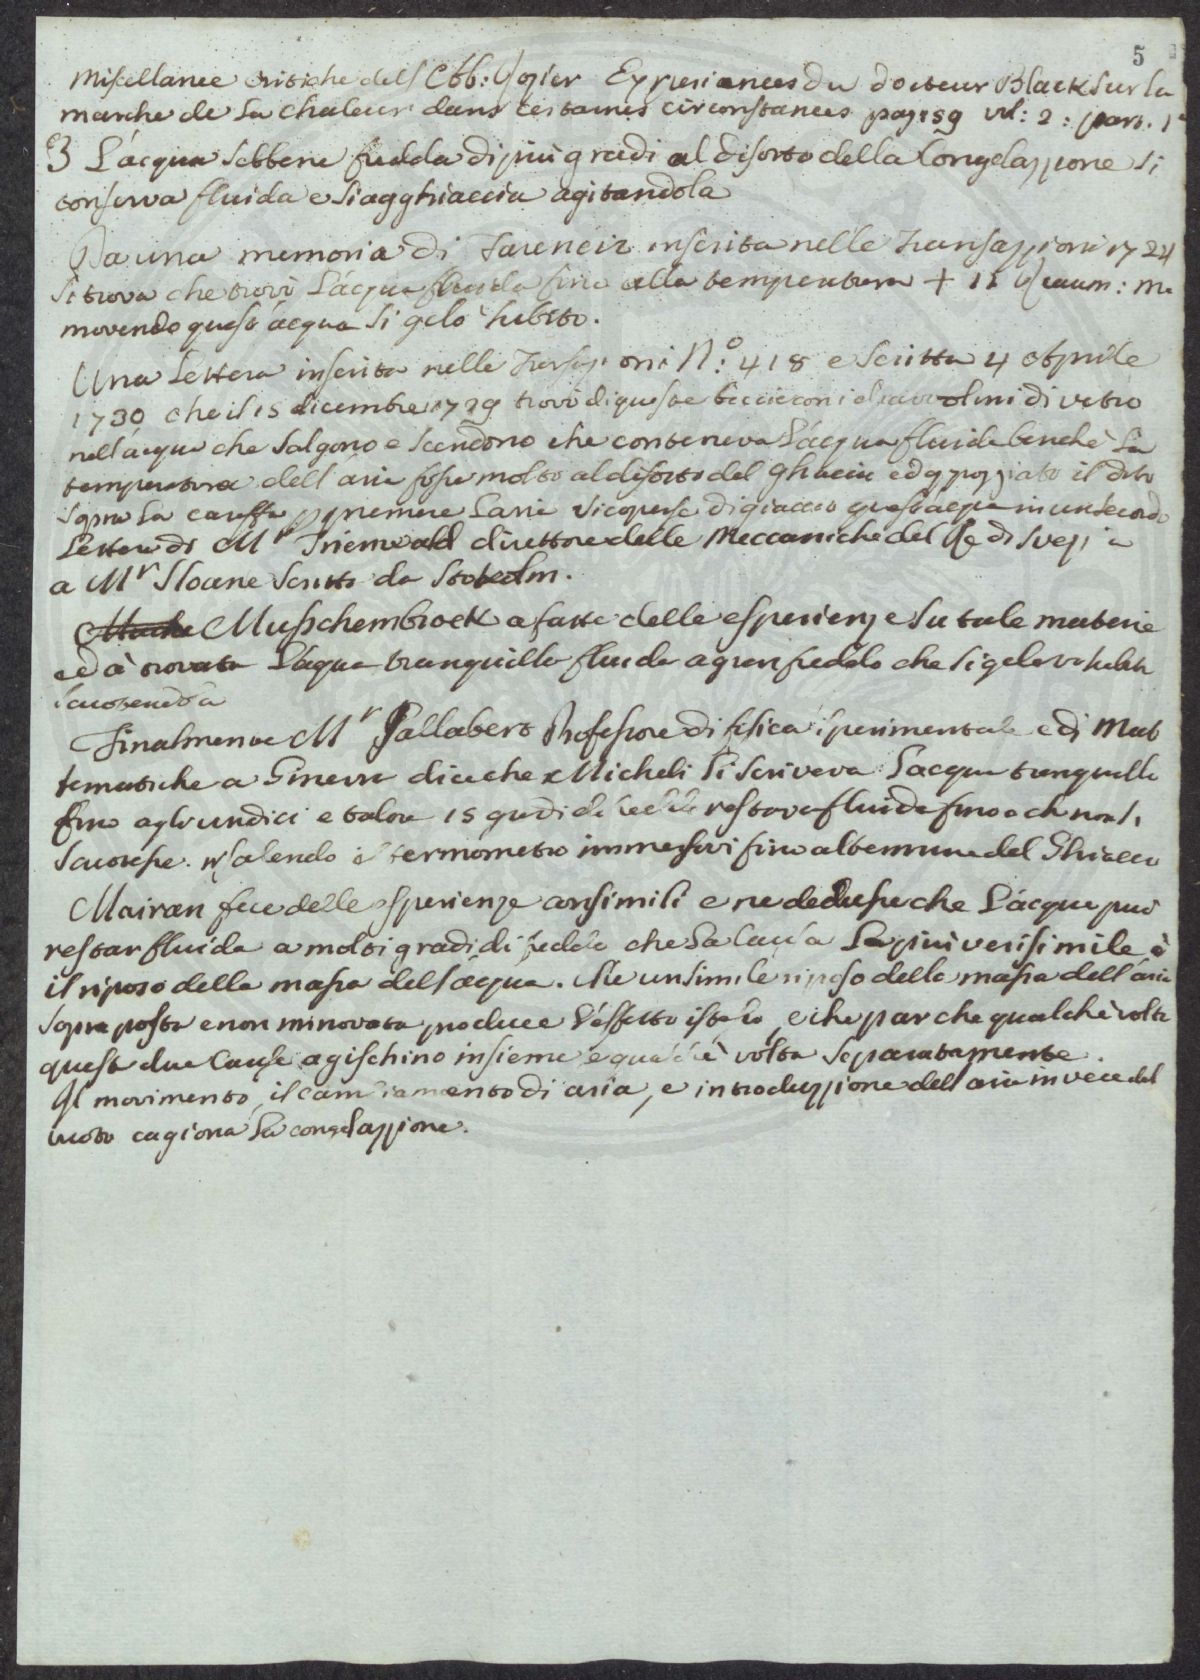 5
Miscellanee critiche dell'Abb: Rozier Experiences du docteur Black sur la
marche de la chaleur dans certaines circonstances pag: 159 vol: 2: part. 1a
L'acqua sebbene fredda di piu gradi al disotto della Congelazzione si
conserva fluida e si agghiaccia agitandola
Da una memoria di Fareneit inserita nelle Transazzioni 1724
si trova che trovò L'acqua fluida fino alla temperatura + 15 Reaum: ma
movendo quest'acqua si gelò subito.
Una Lettera inserita nelle Transazioni N.o 418 e scritta 4 Aprile
1730 che il 15 dicembre 1729 trovò di queste con i diavolini di vetro
nell'acqua che salgono e scendono che conteneva L'acqua fluida benchè La
temperatura dell'aria fosse molto al disotto del ghiaccio ed appoggiato il dito
sopra La caraffa p premere L'aria si coperse di giaccio quest'acqua in un secondo
Lettera di Mr Triewald direttore delle Meccaniche del Re di Svezia
a Mr Sloane scritta da Stokolm.
Musschembroek a fatte delle esperienze su tale materia
ed à trovata L'aqua tranquilla fluida a gran freddo che si gelava subito
scuotendola
Finalmente Mr Jallabert Professore di fisica sperimentale e di Mat
tematiche a Ginevra dice che Micheli Li scriveva L'acqua tranquilla
fino agl'undici e talora 15 gradi di freddo restava fluida fino a che non si
scuotesse. risalendo il termometro immersovi fino al termine del Ghiaccio
Mairan fece delle esperienze consimili e ne dedusse che L'acqua può
restar fluida a molti gradi di freddo che La Causa La piu verisimile è
il riposo della massa dell'acqua. Che un simile riposo della massa dell'aria
sopra posta e non rinovata produce L'effetto istesso, e che par che qualche volta
queste due Cause agischino insieme e qualche volta separatamente.
Il movimento, il cambiamento di aria, e introduzzione dell'aria in vece del
vuoto cagiona La congelazzione.